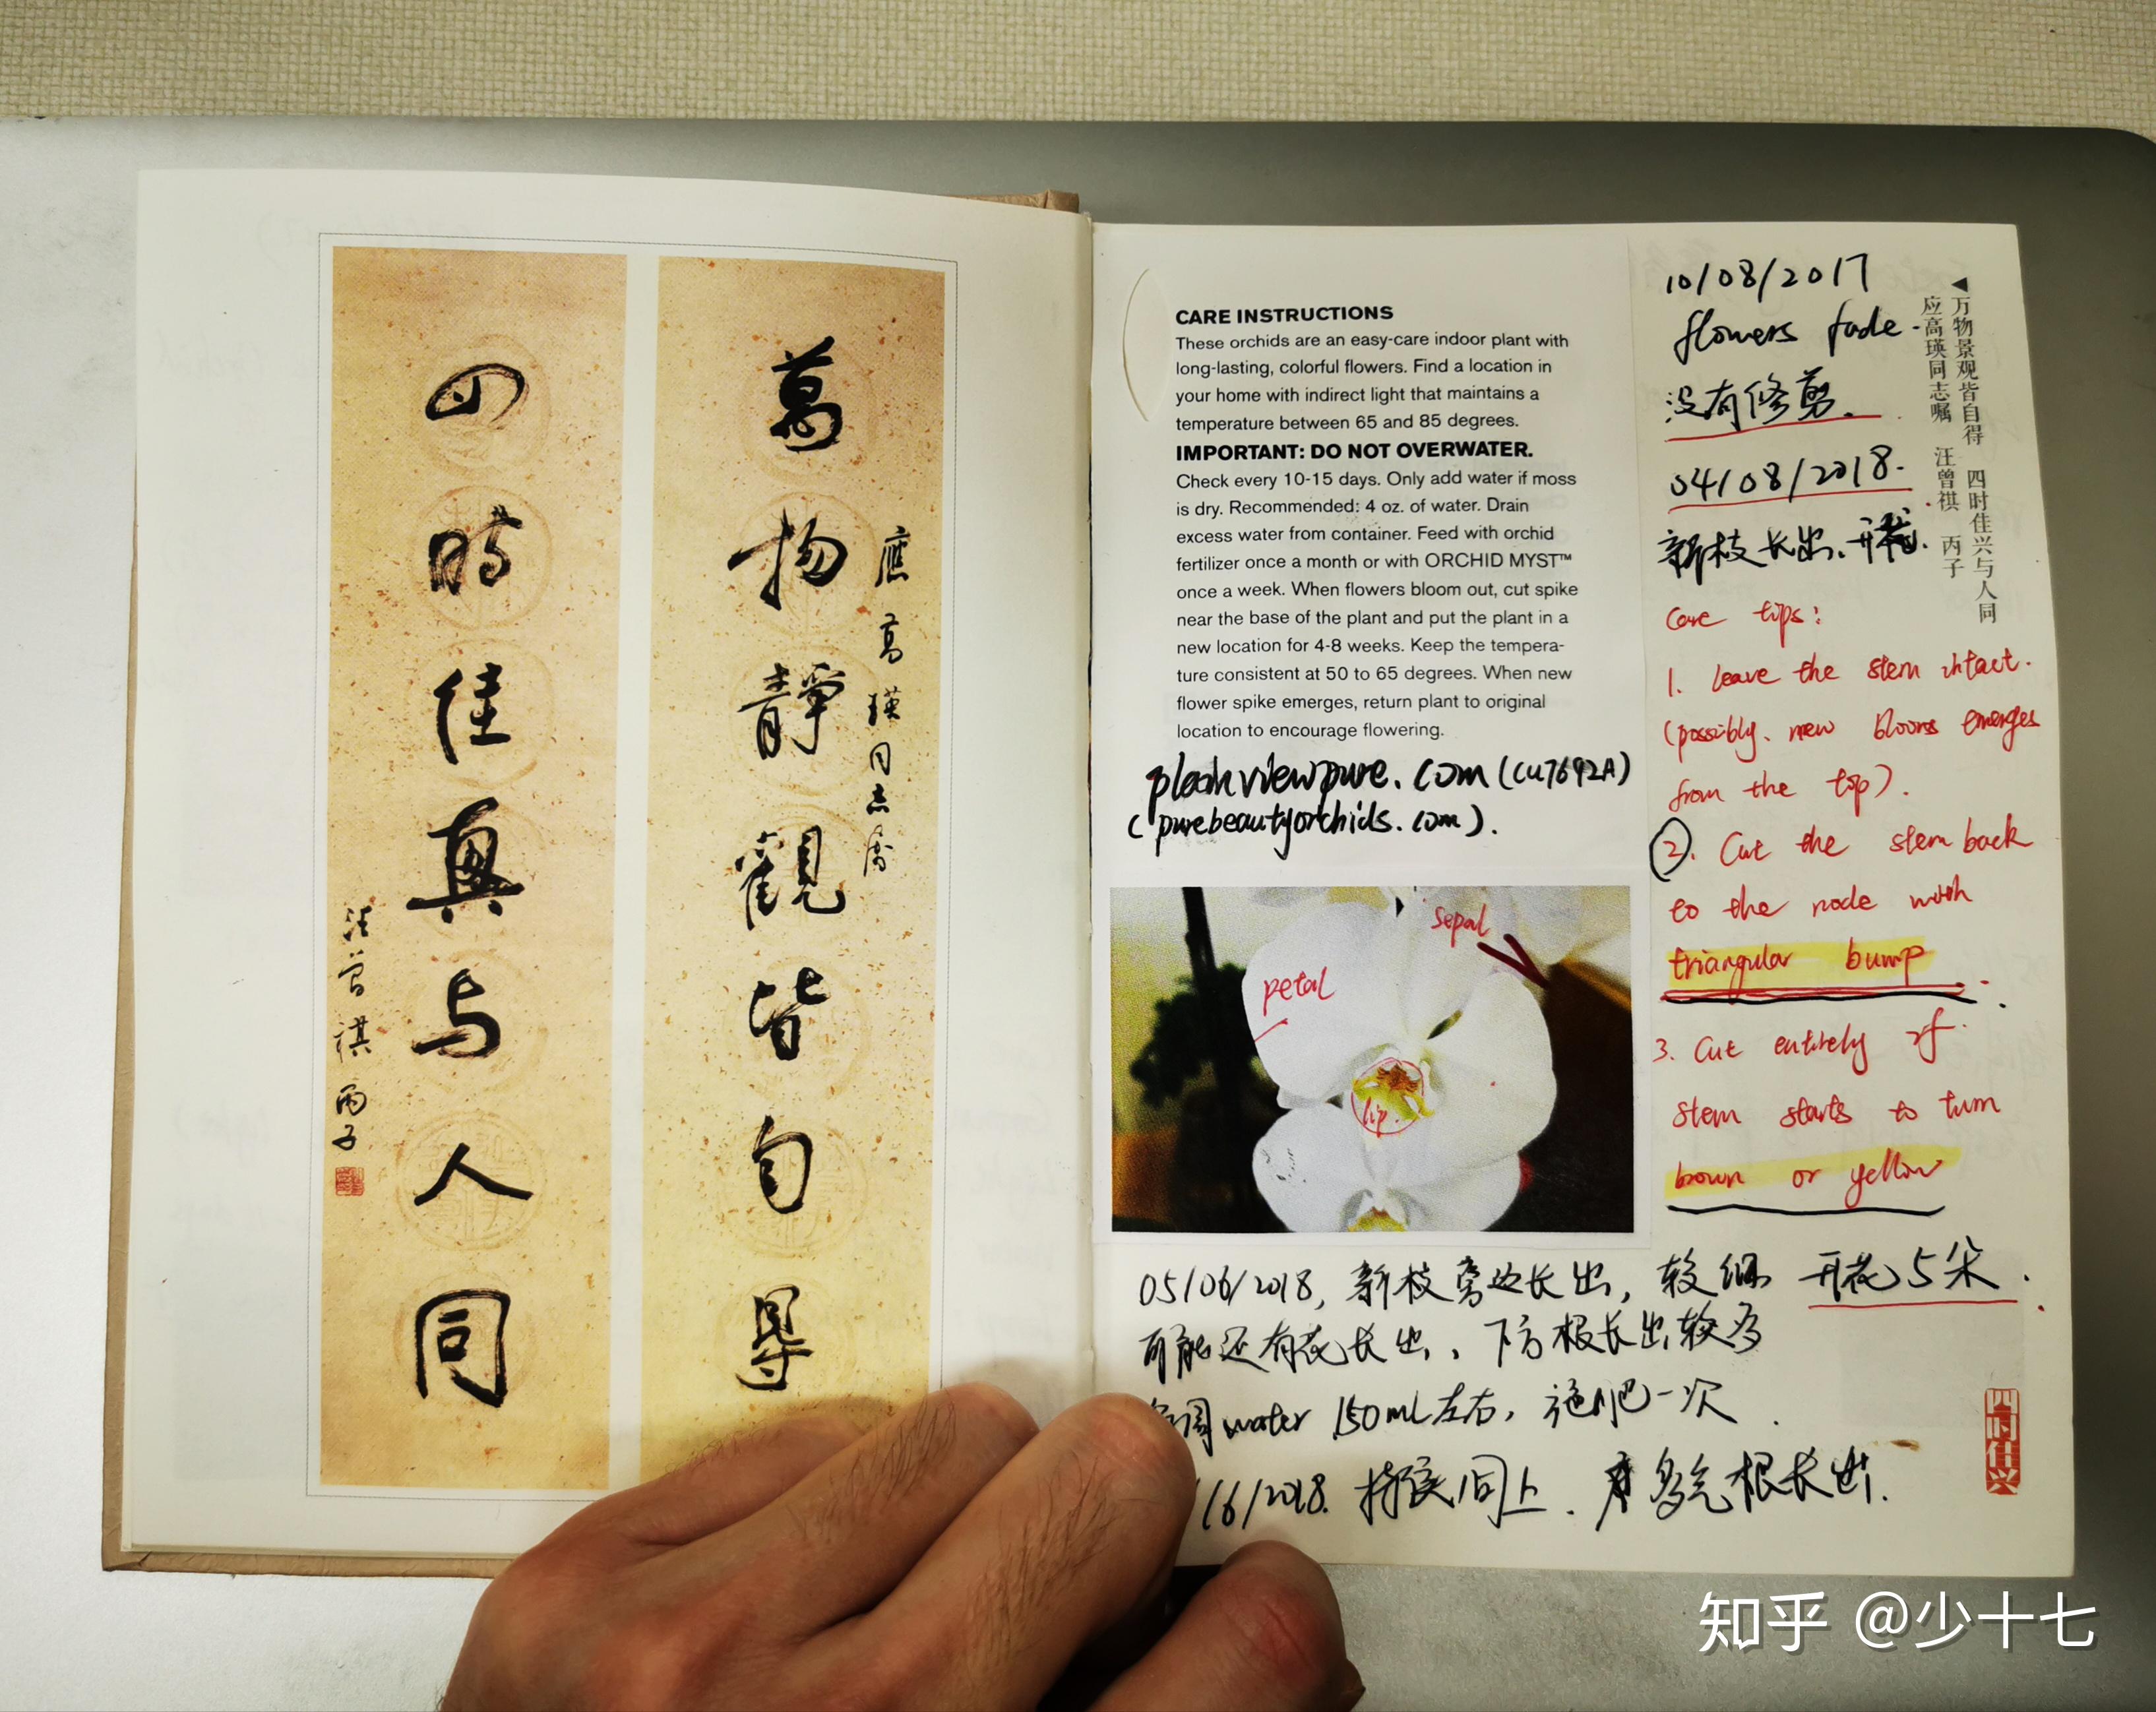 萬物靜觀皆自得
應高瑛同志屬
四時佳興与人同
汪曾祺 丙子
CARE INSTRUCTIONS
These orchids are an easy-care indoor plant with
long-lasting, colorful flowers. Find a location in
your home with indirect light that maintains a
temperature between 65 and 85 degrees.
IMPORTANT: DO NOT OVERWATER.
Check every 10-15 days. Only add water if moss
is dry. Recommended: 4 oz. of water. Drain
excess water from container. Feed with orchid
fertilizer once a month or with ORCHID MYST™
once a week. When flowers bloom out, cut spike
near the base of the plant and put the plant in a
new location for 4-8 weeks. Keep the tempera-
ture consistent at 50 to 65 degrees. When new
flower spike emerges, return plant to original
location to encourage flowering.
viewpure.com (CU7692A)
(purebeautyorchids.com).
sepal
petal
lip.
10/08/2017
flowers fade.
没有修剪.
04/08/2018.
新枝长出、开花.
care tips:
1. Leave the stem intact.
(possibly. new blooms emerges
from the top).
2. Cut the stem back
to the node with
triangular bump.
3. Cut entirely if
stem starts to turn
brown or yellow
◀万物景观皆自得 四时佳兴与人同
应高瑛同志嘱 汪曾祺 丙子
05/06/2018, 新枝旁边长出, 较细 开花5朵.
可能还有花长出, 下方根长出较多
周water 150mL左右, 施肥一次.
/6/2018. 情况同上. 多气根长出.
四时佳兴
知乎 @少十七